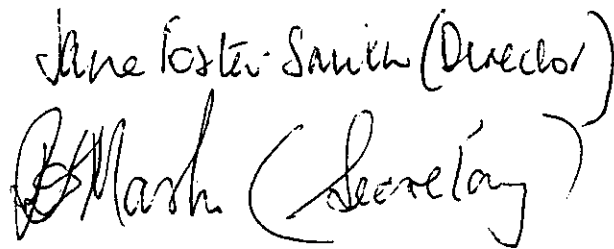 Jane Foster-Smith (Director)
(Secretary)